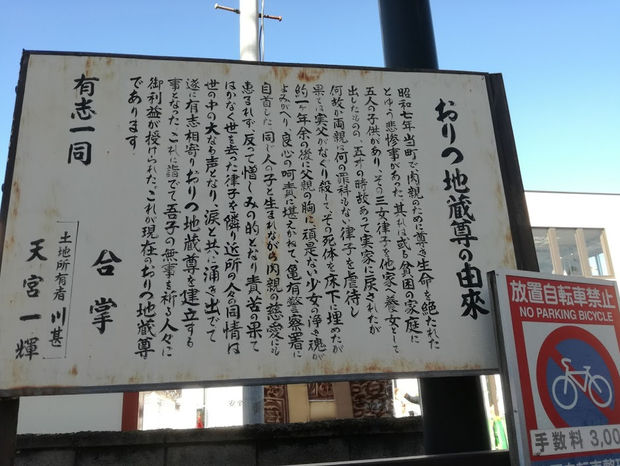 おりつ地蔵尊の由來
昭和七年当町で肉親のために尊き生命を絶たれた
とゆう悲惨事があった 其れは或る貧困の家庭に
五人の子供があり、その三女律子を他家へ養女として
出したものの 五才の時故あって実家に戻されたが
何故か両親は何の罪科もない律子を虐待し
果ては実父がなぐり殺して、その死体を床下に埋めたが
約一ヶ年余の後に父親の胸に頑是ない少女の浄き魂が
よみがへり、良心の呵責に堪えかねて 亀有警察署に
自首した 同じ人の子と生まれながら肉親の慈愛にも
恵まれず 反って憎しみの的となり責苦の果て
はかなく世を去った律子を隣り近所の人の同情は
世の中の大なる声となり、涙と共に涌き出でて
遂に有志相寄りおりつ地蔵尊を建立する
事となった これに詣でて吾子の無事を祈る人々に
御利益が授けられた、これが現在のおりつ地蔵尊
であります
有志一同
合掌
土地所有者 川甚
天宮一輝
放置自転車禁止
NO PARKING BICYCLE
手数料 3,00